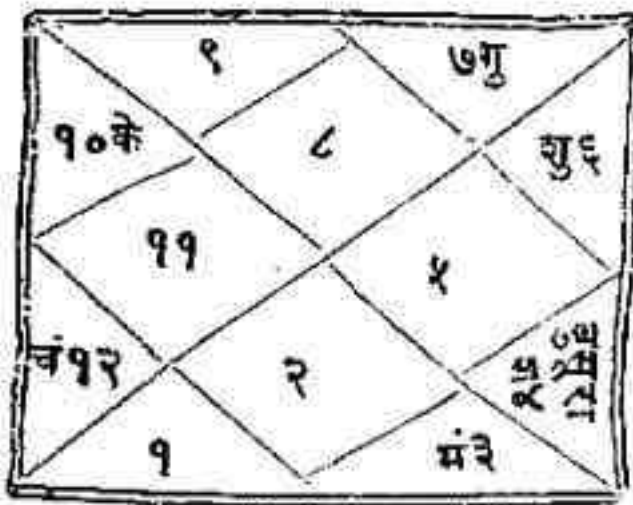 ९ ७गु
१०के ८ शु६
११ ५
चं१२ २
१ मं३